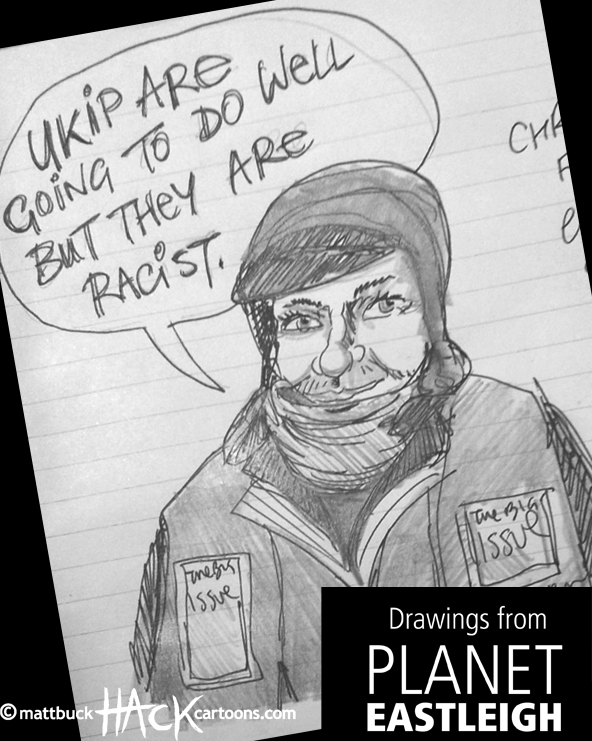 UKIP ARE
GOING TO DO WELL
BUT THEY ARE
RACIST.
THE BIG
ISSUE
THE BIG
ISSUE
Drawings from
PLANET
EASTLEIGH
©mattbuckHACKcartoons.com